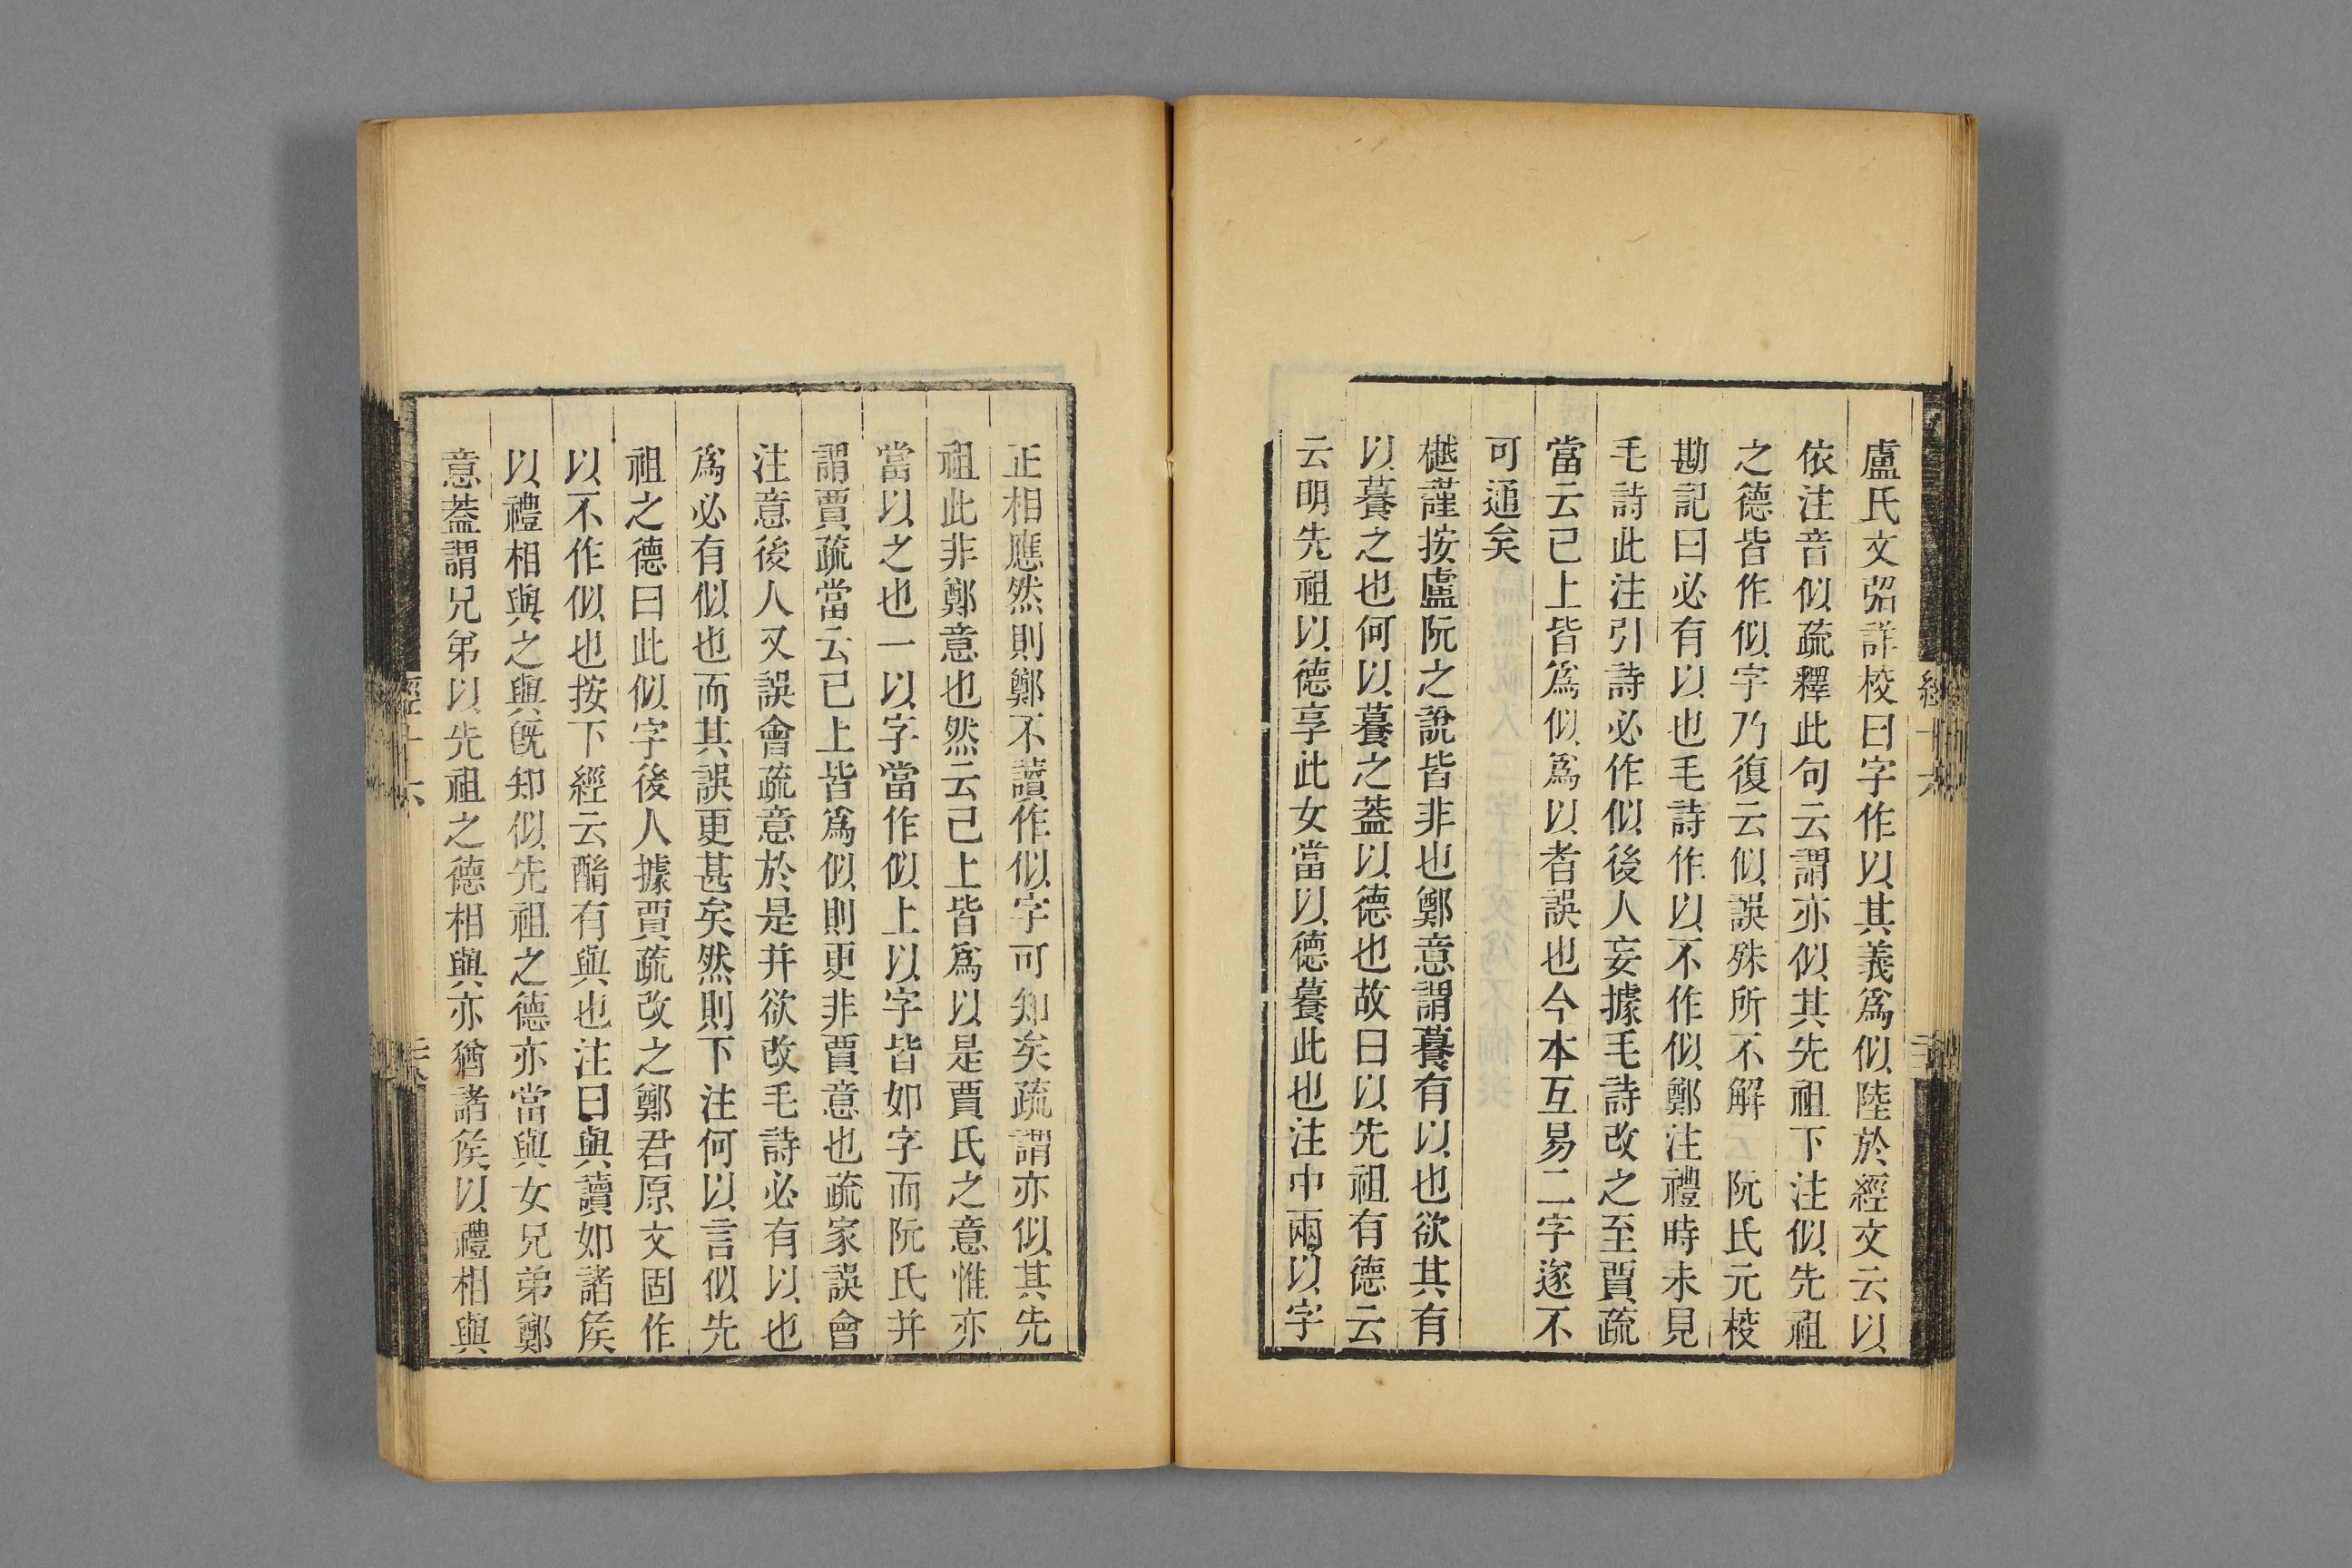 盧氏文弨詳校曰字作以其義爲似陸於經文云以
依注音似疏釋此句云謂亦似其先祖下注似先祖
之德皆作似字乃復云似誤殊所不解　阮氏元校
勘記曰必有以也毛詩作以不作似鄭注禮時未見
毛詩此注引詩必作似後人妄據毛詩改之至賈疏
當云己上皆爲似爲以者誤也今本互易二字遂不
可通矣
樾謹按盧阮之說皆非也鄭意謂養有以也欲其有
以養之也何以養之蓋以德也故曰以先祖有德云
云明先祖以德享此女當以德養此也注中兩以字
正相應然則鄭不讀作似字可知矣疏謂亦似其先
祖此非鄭意也然云己上皆爲以是賈氏之意惟亦
當以之也一以字當作似上以字皆如字而阮氏幷
謂賈疏當云已上皆爲似則更非賈意也疏家誤會
注意後人又誤會疏意於是幷欲改毛詩必有以也
爲必有似也而其誤更甚矣然則下注何以言似先
祖之德曰此似字後人據賈疏改之鄭君原文固作
以不作似也按下經云酳有與也注曰與讀如諸矦
以禮相與之與旣知似先祖之德亦當與女兄弟鄭
意蓋謂兄弟以先祖之德相與亦猶諸矦以禮相與